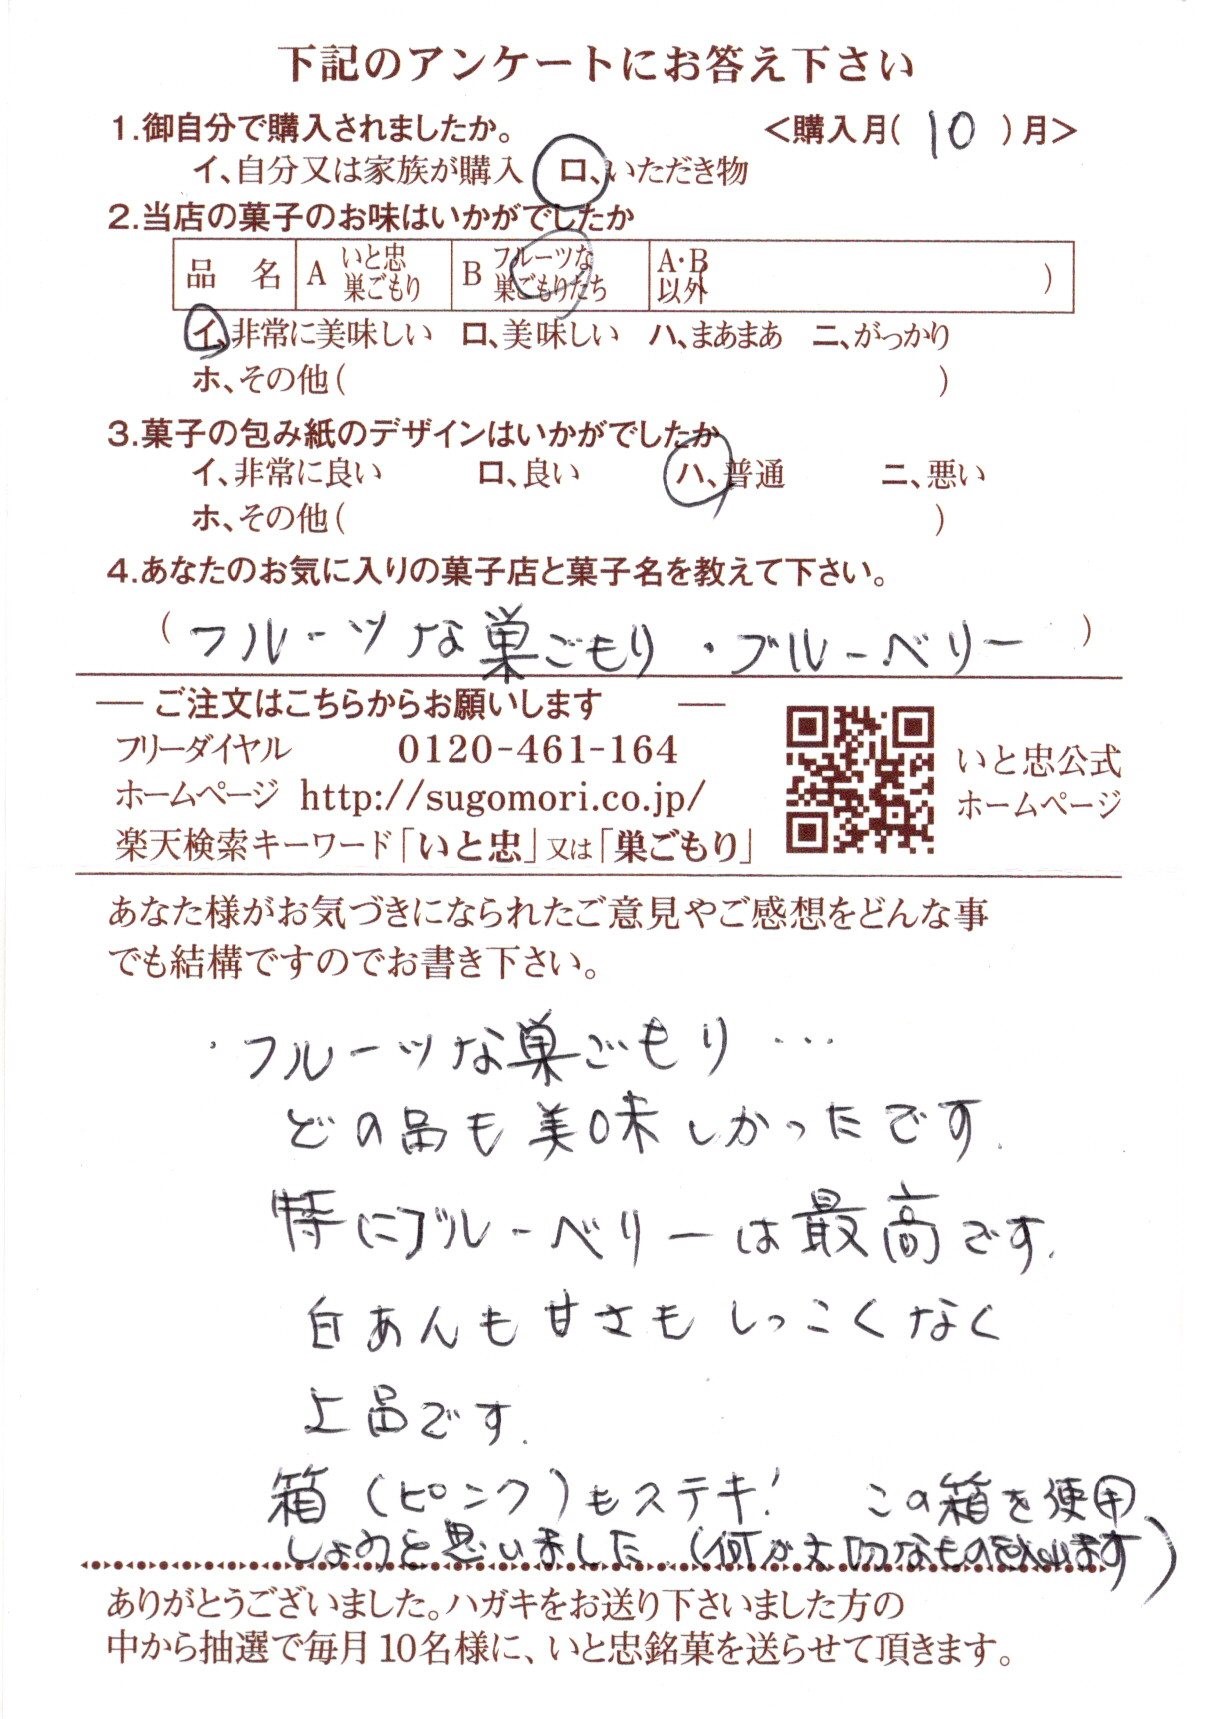 下記のアンケートにお答え下さい
1.御自分で購入されましたか。 <購入月( 10 )月>
イ、自分又は家族が購入 ロ、いただき物
2.当店の菓子のお味はいかがでしたか
品 名 A いと忠 巣ごもり B フルーツな 巣ごもりたち A・B 以外( )
イ、非常に美味しい ロ、美味しい ハ、まあまあ ニ、がっかり
ホ、その他( )
3.菓子の包み紙のデザインはいかがでしたか
イ、非常に良い ロ、良い ハ、普通 ニ、悪い
ホ、その他( )
4.あなたのお気に入りの菓子店と菓子名を教えて下さい。
( フルーツな巣ごもり・ブルーベリー )
― ご注文はこちらからお願いします ―
フリーダイヤル 0120-461-164
ホームページ http://sugomori.co.jp/
楽天検索キーワード「いと忠」又は「巣ごもり」
いと忠公式
ホームページ
あなた様がお気づきになられたご意見やご感想をどんな事
でも結構ですのでお書き下さい。
・フルーツな巣ごもり・・・
どの品も美味しかったです.
特にブルーベリーは最高です.
白あんも甘さもしつこくなく
上品です.
箱(ピンク)もステキ! この箱を使用
しようと思いました.(何か大切なものを入れます)
ありがとうございました。ハガキをお送り下さいました方の
中から抽選で毎月10名様に、いと忠銘菓を送らせて頂きます。